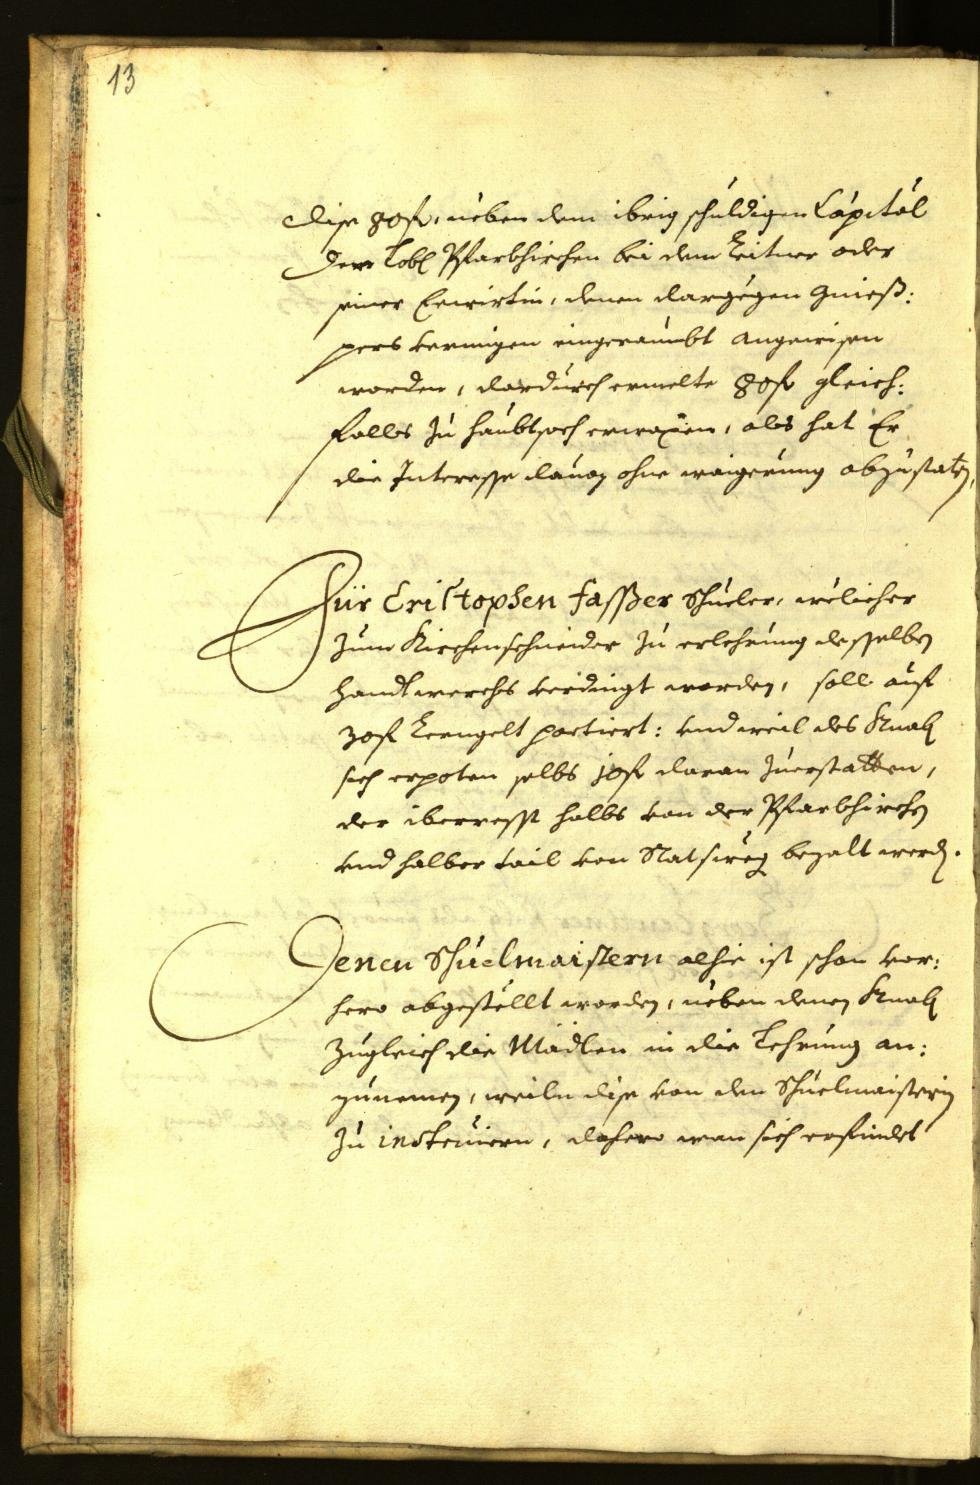 13
dise 80 f, neben dem ibrig schuldigen Capital
der Lobl Pfarkhirchen bei dem Leitner oder
seiner Eewirtin, denen dargegen gnieß:
pers vermigen eingeraumbt angewisen
worden, dardurch ermelte 80 f gleich:
falls zu haubtsach erwaxen, als hat Er
die Interesse dauon ohne waigerung abzustaten,
Für Cristophen Fasßer Schueler, welicher
zum Kirchenschneider zu erlehrung desselben
handtwerchs verdingt worden, soll auf
30 f Lerngelt pactiert: vnd weil des Knab
sich erpoten selbs 10 f daran zuerstatten,
der iberresst halbs von der Pfarkhirchen
vnd halber tail von Statsweg bezalt werden.
Denen Schuelmaistern alhie ist schon vor:
hero abgestellt worden, neben denen Knaben
zugleich die Mädlen in die Lehrung an:
zunemen, weiln dise von den Schuelmaisterin
zu instruiern, dahero man sich erfindet